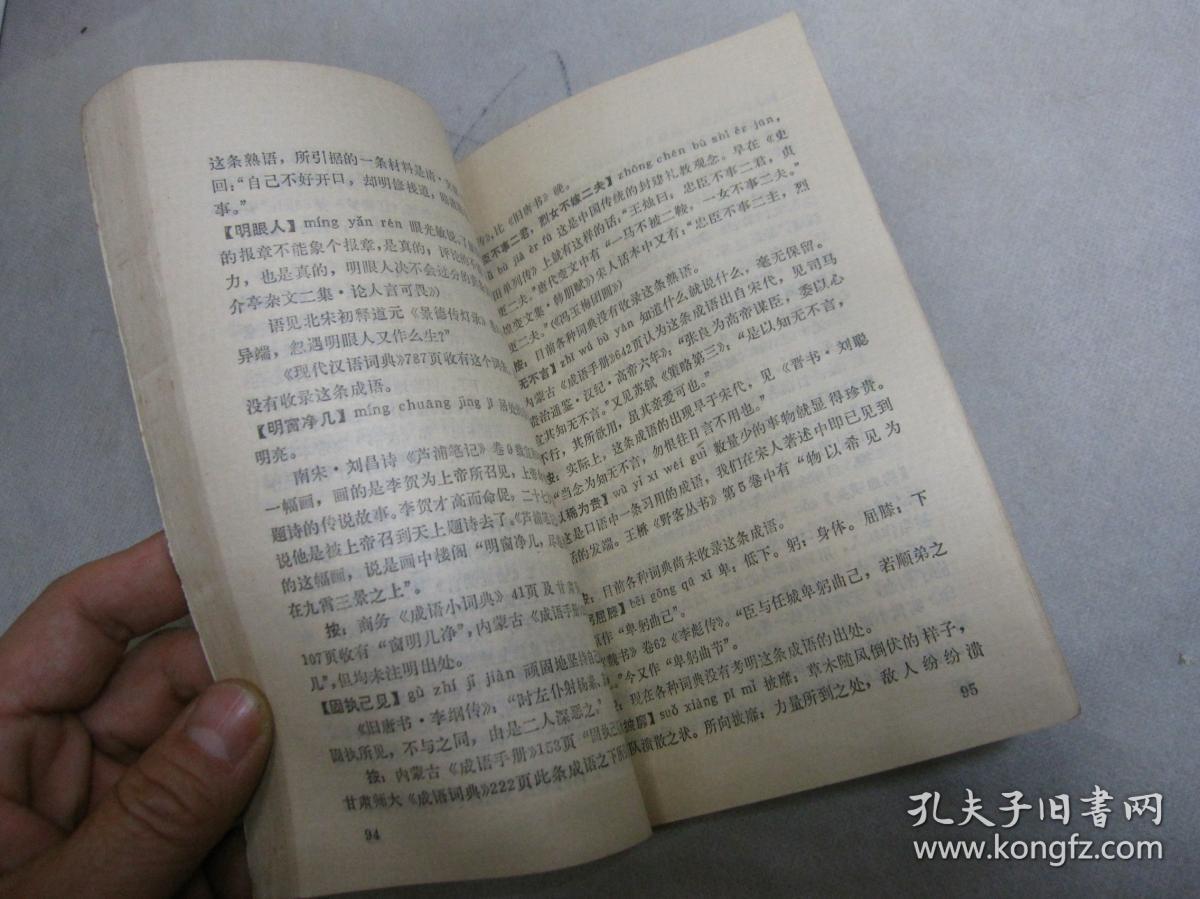 这条熟语，所引据的一条材料是清·
回：“自己不好开口，却明修栈道，
事。”
【明眼人】míng yǎn rén 眼光敏锐、了解
的报章不能象个报章，是真的，评论的不
力，也是真的，明眼人决不会过分的责
介亭杂文二集·论人言可畏》）
语见北宋初释道元《景德传灯录》
异端，忽遇明眼人又作么生？”
《现代汉语词典》787页收有这个词
没有收录这条成语。
【明窗净几】míng chuāng jìng jī
明亮。
南宋·刘昌诗《芦浦笔记》卷
一幅画，画的是李贺为上帝所召见，上帝
题诗的传说故事。李贺才高而命促，二十七
说他是被上帝召到天上题诗去了。《芦浦笔
的这幅画，说是画中楼阁“明窗净几，
在九霄三景之上”。
按：商务《成语小词典》41页及甘肃
107页收有“窗明几净”，内蒙古《成语手
几”，但均未注明出处。
【固执己见】gù zhí jǐ jiàn 顽固地坚持自己
《旧唐书·李纲传》：“时左仆射杨素、
固执所见，不与之同，由是二人深恶之。”
按：内蒙古《成语手册》153页“固执己
甘肃师大《成语词典》222页此条成语之下
94
比《旧唐书》晚。
臣不事二君，烈女不嫁二夫】zhōng chén bù shì èr jūn，
bù jià èr fū 这是中国传统的封建礼教观念。早在《史
田单列传》上就有这样的话：“王烛曰：忠臣不事二君，贞
更二夫。”唐代变文中有“一马不被二鞍，一女不事二夫。”
变文集·韩朋赋》）宋人话本中又有：“忠臣不事二主，烈
更二夫。”（《冯玉梅团圆》）
按：目前各种词典没有收录这条熟语。
无不言】zhī wú bù yán 知道什么就说什么，毫无保留。
内蒙古《成语手册》642页认为这条成语出自宋代，见司马
资治通鉴·汉纪·高帝六年》：“张良为高帝谋臣，委以心
宜其知无不言。”又见苏轼《策略第三》：“是以知无不言，
不行，其所欲用，虽其亲爱可也。”
按：实际上，这条成语的出现早于宋代，见《晋书·刘聪
“当念为知无不言，勿恨往日言不用也。”
以稀为贵】wù yǐ xī wéi guì 数量少的事物就显得珍贵。
这是口语中一条习用的成语，我们在宋人著述中即已见到
的发端。王楙《野客丛书》第5卷中有“物以希见为
按：目前各种词典尚未收录这条成语。
躬屈膝】bēi gōng qū xī 卑：低下。躬：身体。屈膝：下
原作“卑躬曲己”。
《魏书》卷62《李彪传》。“臣与任城卑躬曲己，若顺弟之
今又作“卑躬曲节”。
按：现在各种词典没有考明这条成语的出处。
披靡】suǒ xiàng pī mǐ 披靡：草木随风倒伏的样子，
队溃散之状。所向披靡：力量所到之处，敌人纷纷溃
95
孔夫子旧书网
www.kongfz.com